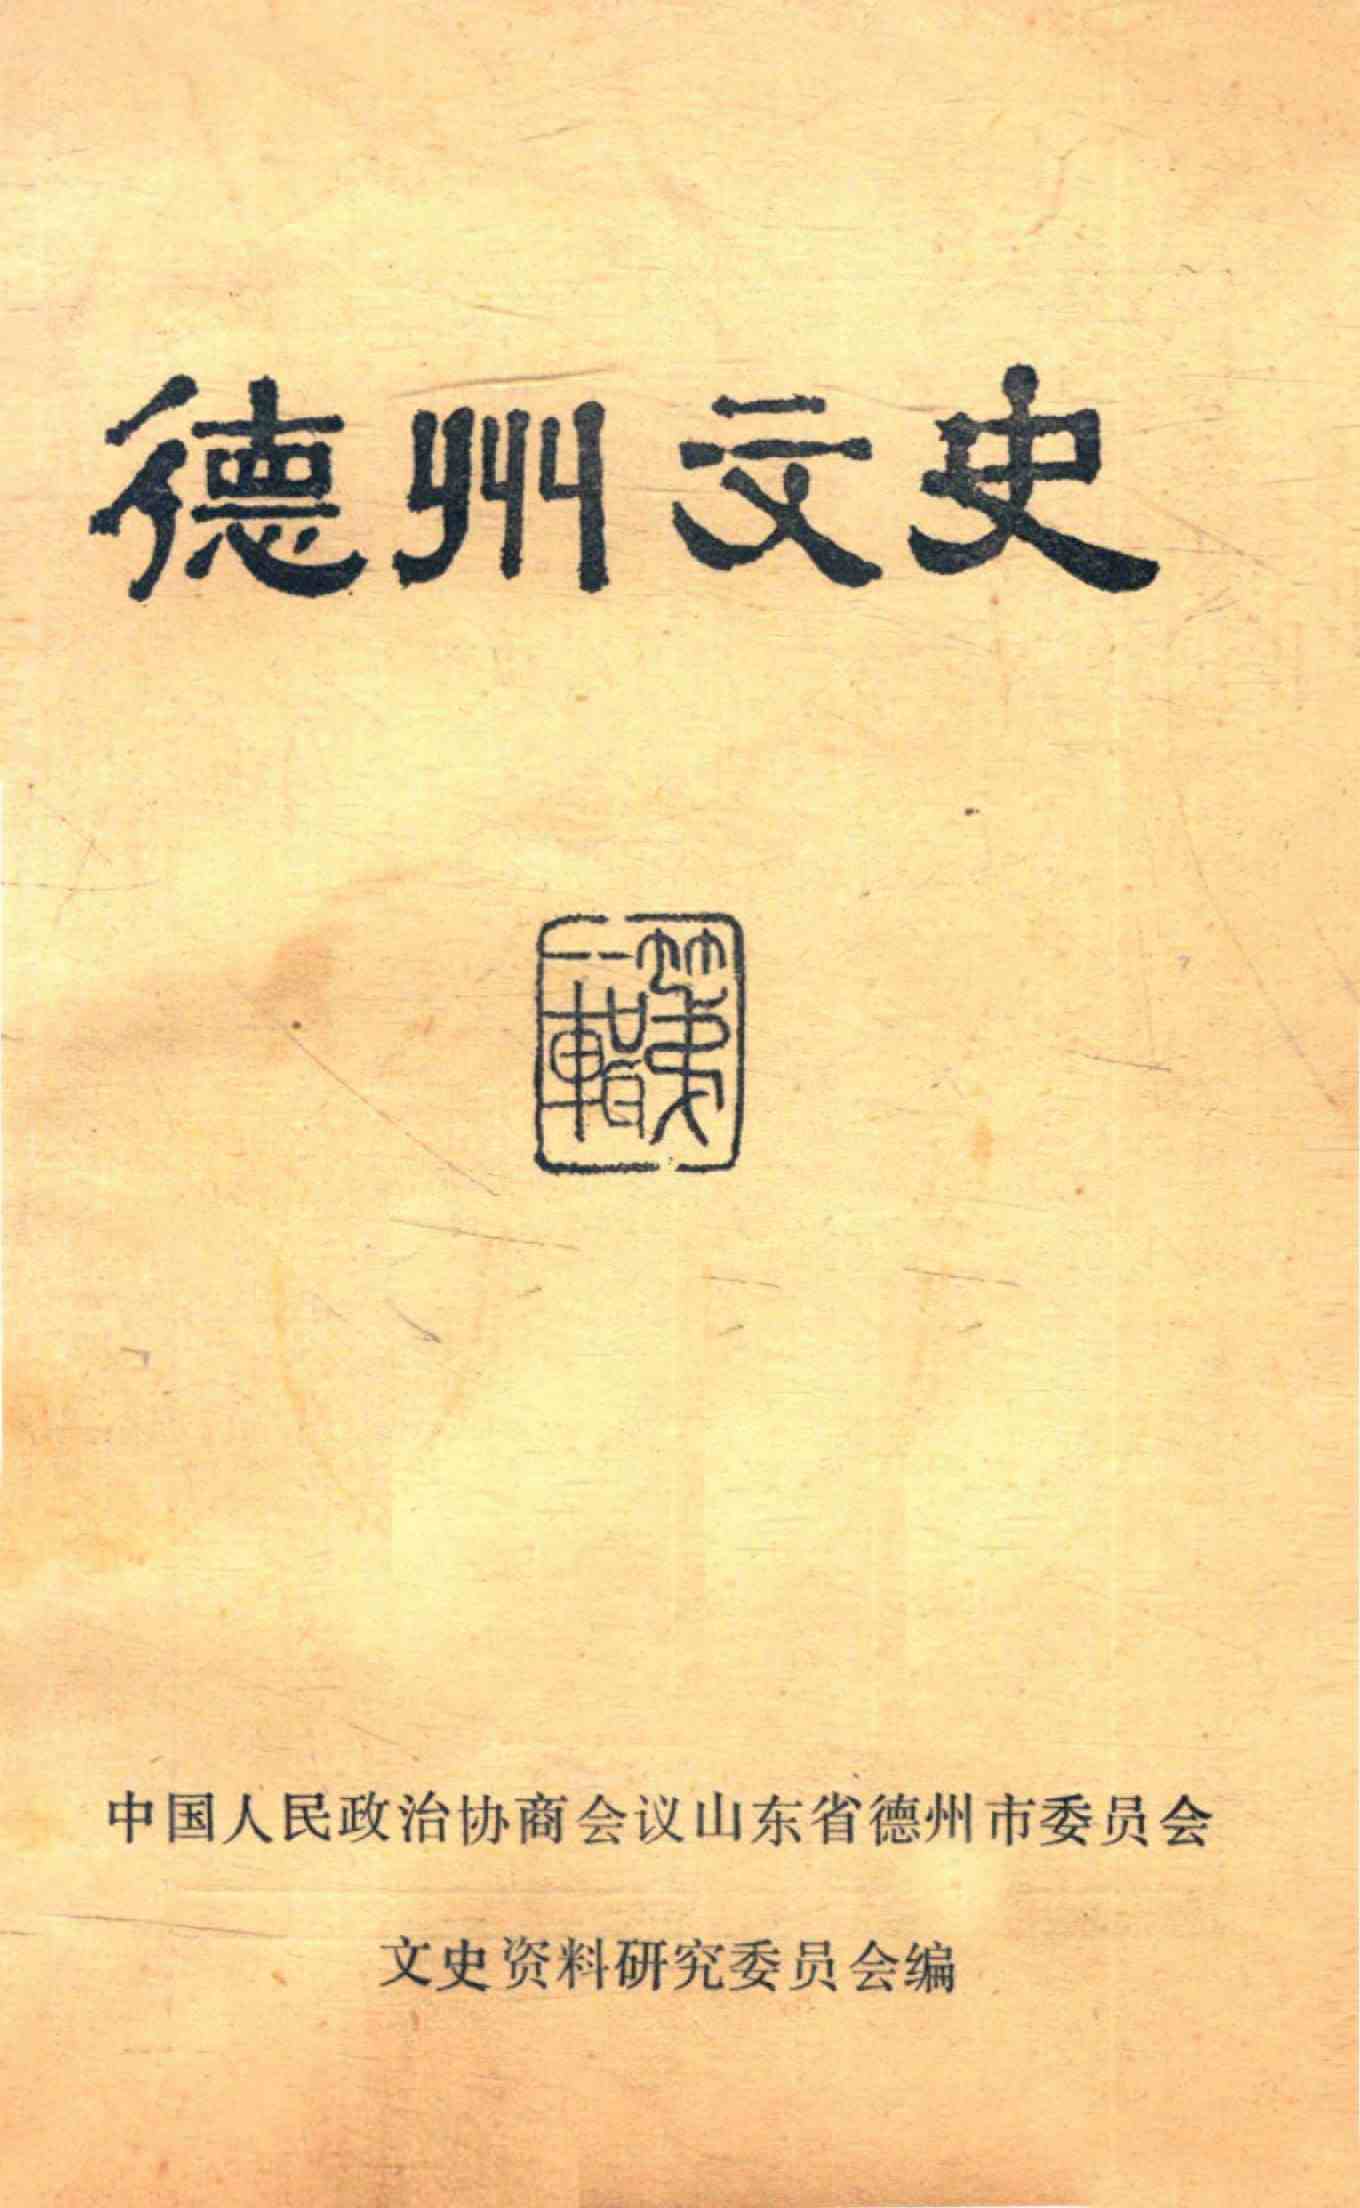 德州文史
第一輯
中国人民政治协商会议山东省德州市委员会
文史资料研究委员会编